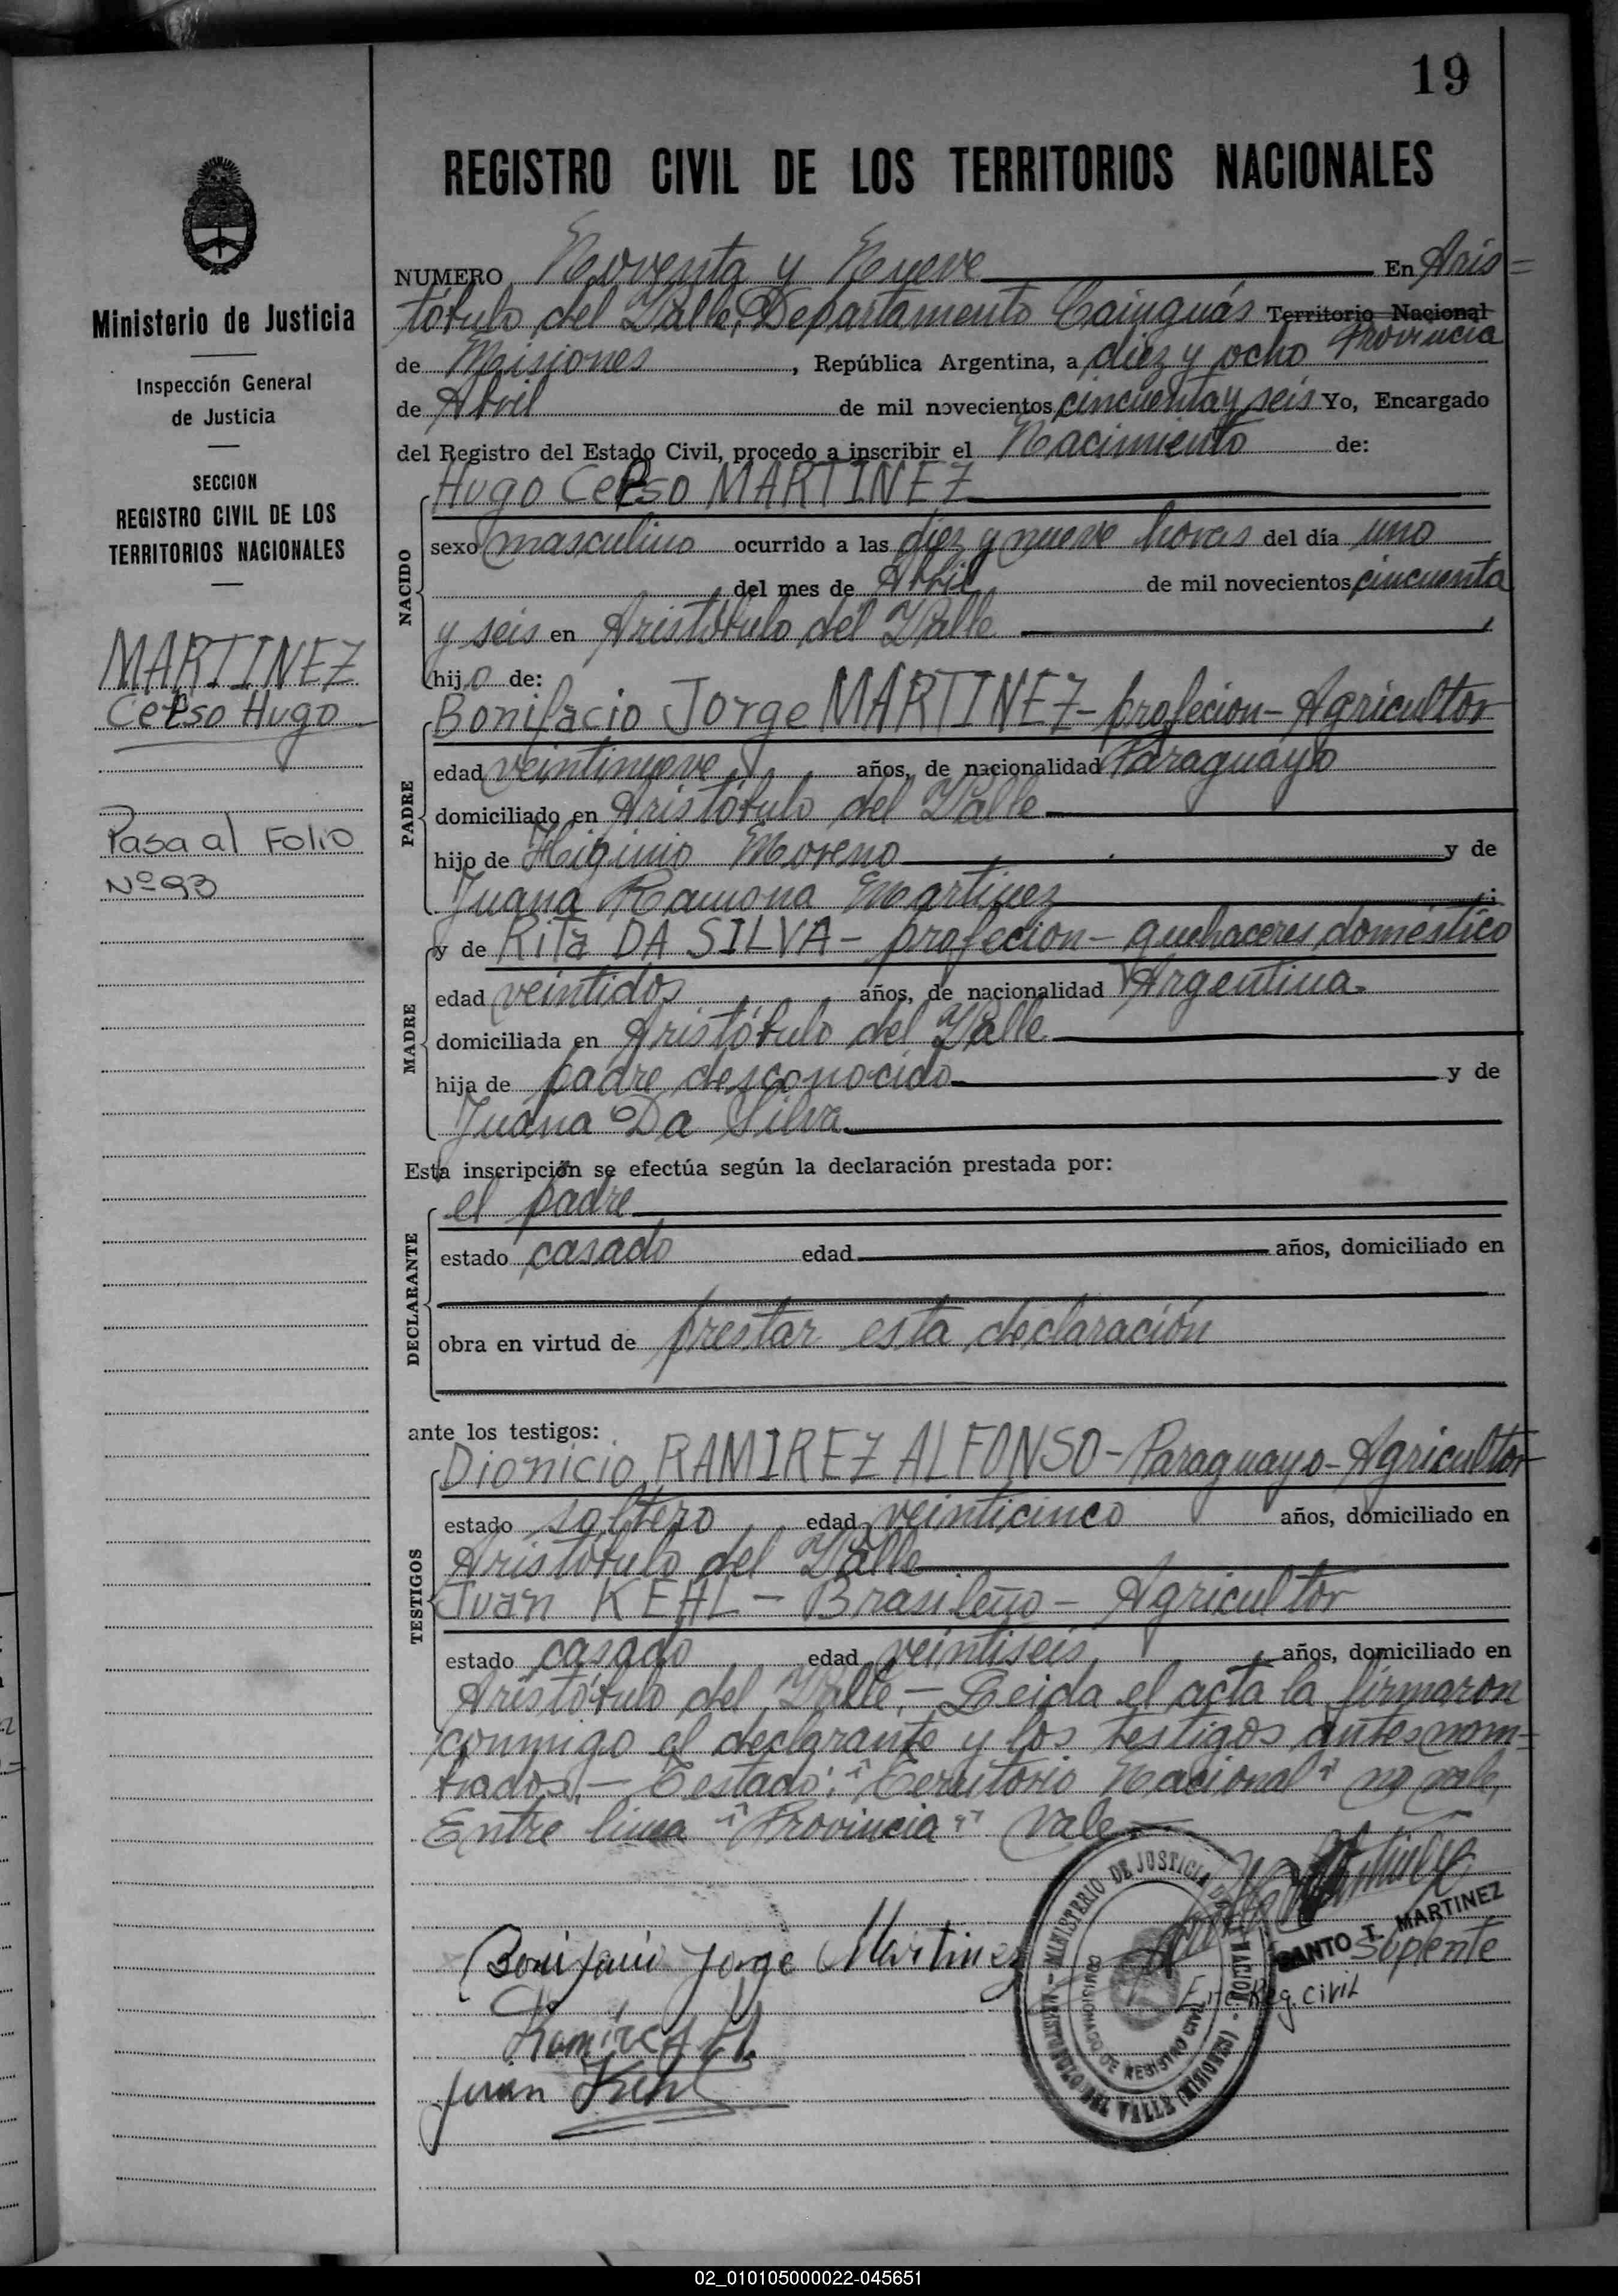 19
REGISTRO CIVIL DE LOS TERRITORIOS NACIONALES
Ministerio de Justicia
Inspección General
de Justicia
SECCION
REGISTRO CIVIL DE LOS
TERRITORIOS NACIONALES
MARTINEZ
Celso Hugo
Pasa al Folio
Nº 93
NUMERO Noventa y Nueve En Aris=
tóbulo del Valle, Departamento Cainguás Territorio Nacional
Provincia
de Misiones, República Argentina, a diez y ocho
de Abril de mil novecientos cincuenta y seis Yo, Encargado
del Registro del Estado Civil, procedo a inscribir el Nacimiento de:
NACIDO
Hugo Celso MARTINEZ
sexo masculino ocurrido a las diez y nueve horas del día uno
del mes de Abril de mil novecientos cincuenta
y seis en Aristóbulo del Valle
hijo de:
PADRE
Bonifacio Jorge MARTINEZ - profecion - Agricultor
edad veintinueve años, de nacionalidad Paraguayo
domiciliado en Aristóbulo del Valle
hijo de Higinio Moreno y de
Juana Ramona Martinez;
MADRE
y de Rita DA SILVA - profecion - quehaceres doméstico
edad veintidos años, de nacionalidad Argentina
domiciliada en Aristóbulo del Valle
hija de padre desconocido y de
Juana Da Silva
Esta inscripción se efectúa según la declaración prestada por:
DECLARANTE
el padre
estado casado edad años, domiciliado en
obra en virtud de prestar esta declaración
ante los testigos:
TESTIGOS
Dionicio RAMIREZ ALFONSO - Paraguayo - Agricultor
estado soltero edad veinticinco años, domiciliado en
Aristóbulo del Valle
Juan KEHL - Brasileño - Agricultor
estado casado edad veintiseis años, domiciliado en
Aristóbulo del Valle. - Leida el acta la firmaron
conmigo el declarante y los testigos antes nom=
brados. - Testado: "Territorio Nacional" no vale,
Entre linea "Provincia" vale.
MINISTERIO DE JUSTICIA DE LA NACION
ARISTOBULO DEL VALLE (MISIONES)
COMISIONADO DE REGISTRO CIVIL
SANTO T. MARTINEZ
Suplente
Enc. Reg. Civil
Bonifacio Jorge Martinez
Ramirez A
Juan Kehl
02_010105000022-045651